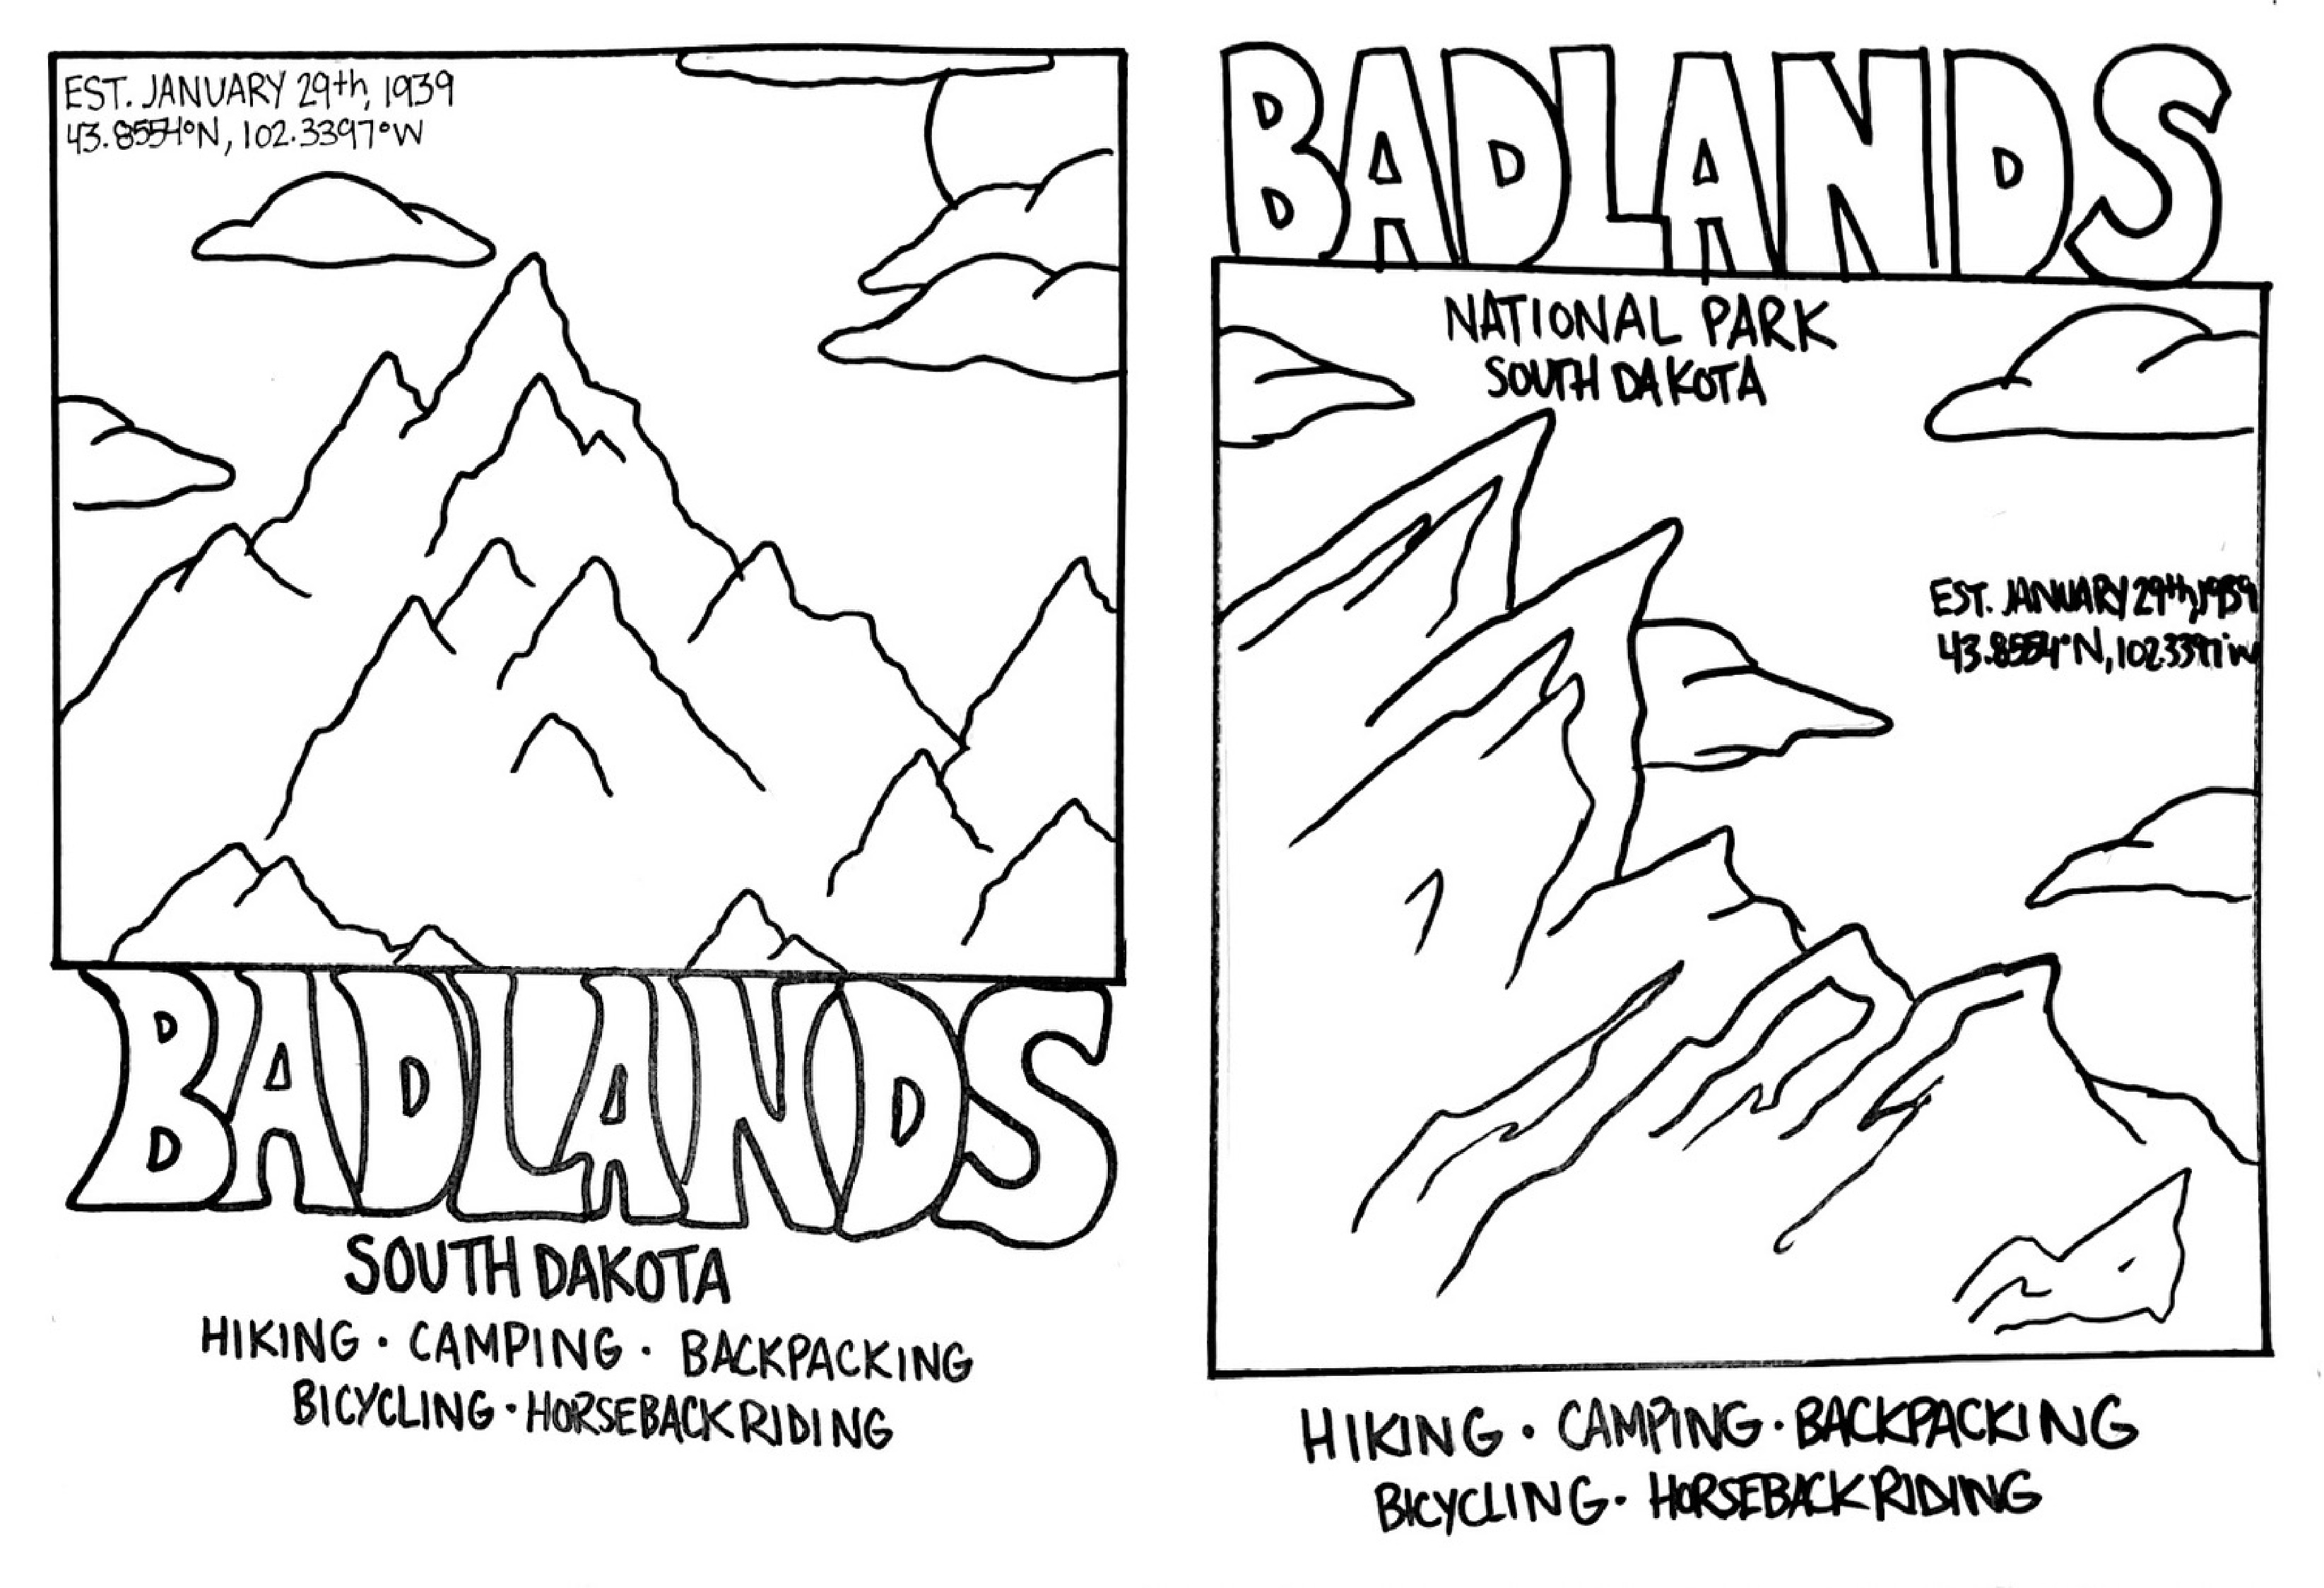 EST. JANUARY 29th, 1939
43.8554°N, 102.3397°W
BADLANDS
SOUTH DAKOTA
HIKING · CAMPING · BACKPACKING
BICYCLING · HORSEBACK RIDING
BADLANDS
NATIONAL PARK
SOUTH DAKOTA
EST. JANUARY 29th, 1939
43.8554°N, 102.3397°W
HIKING · CAMPING · BACKPACKING
BICYCLING · HORSEBACK RIDING